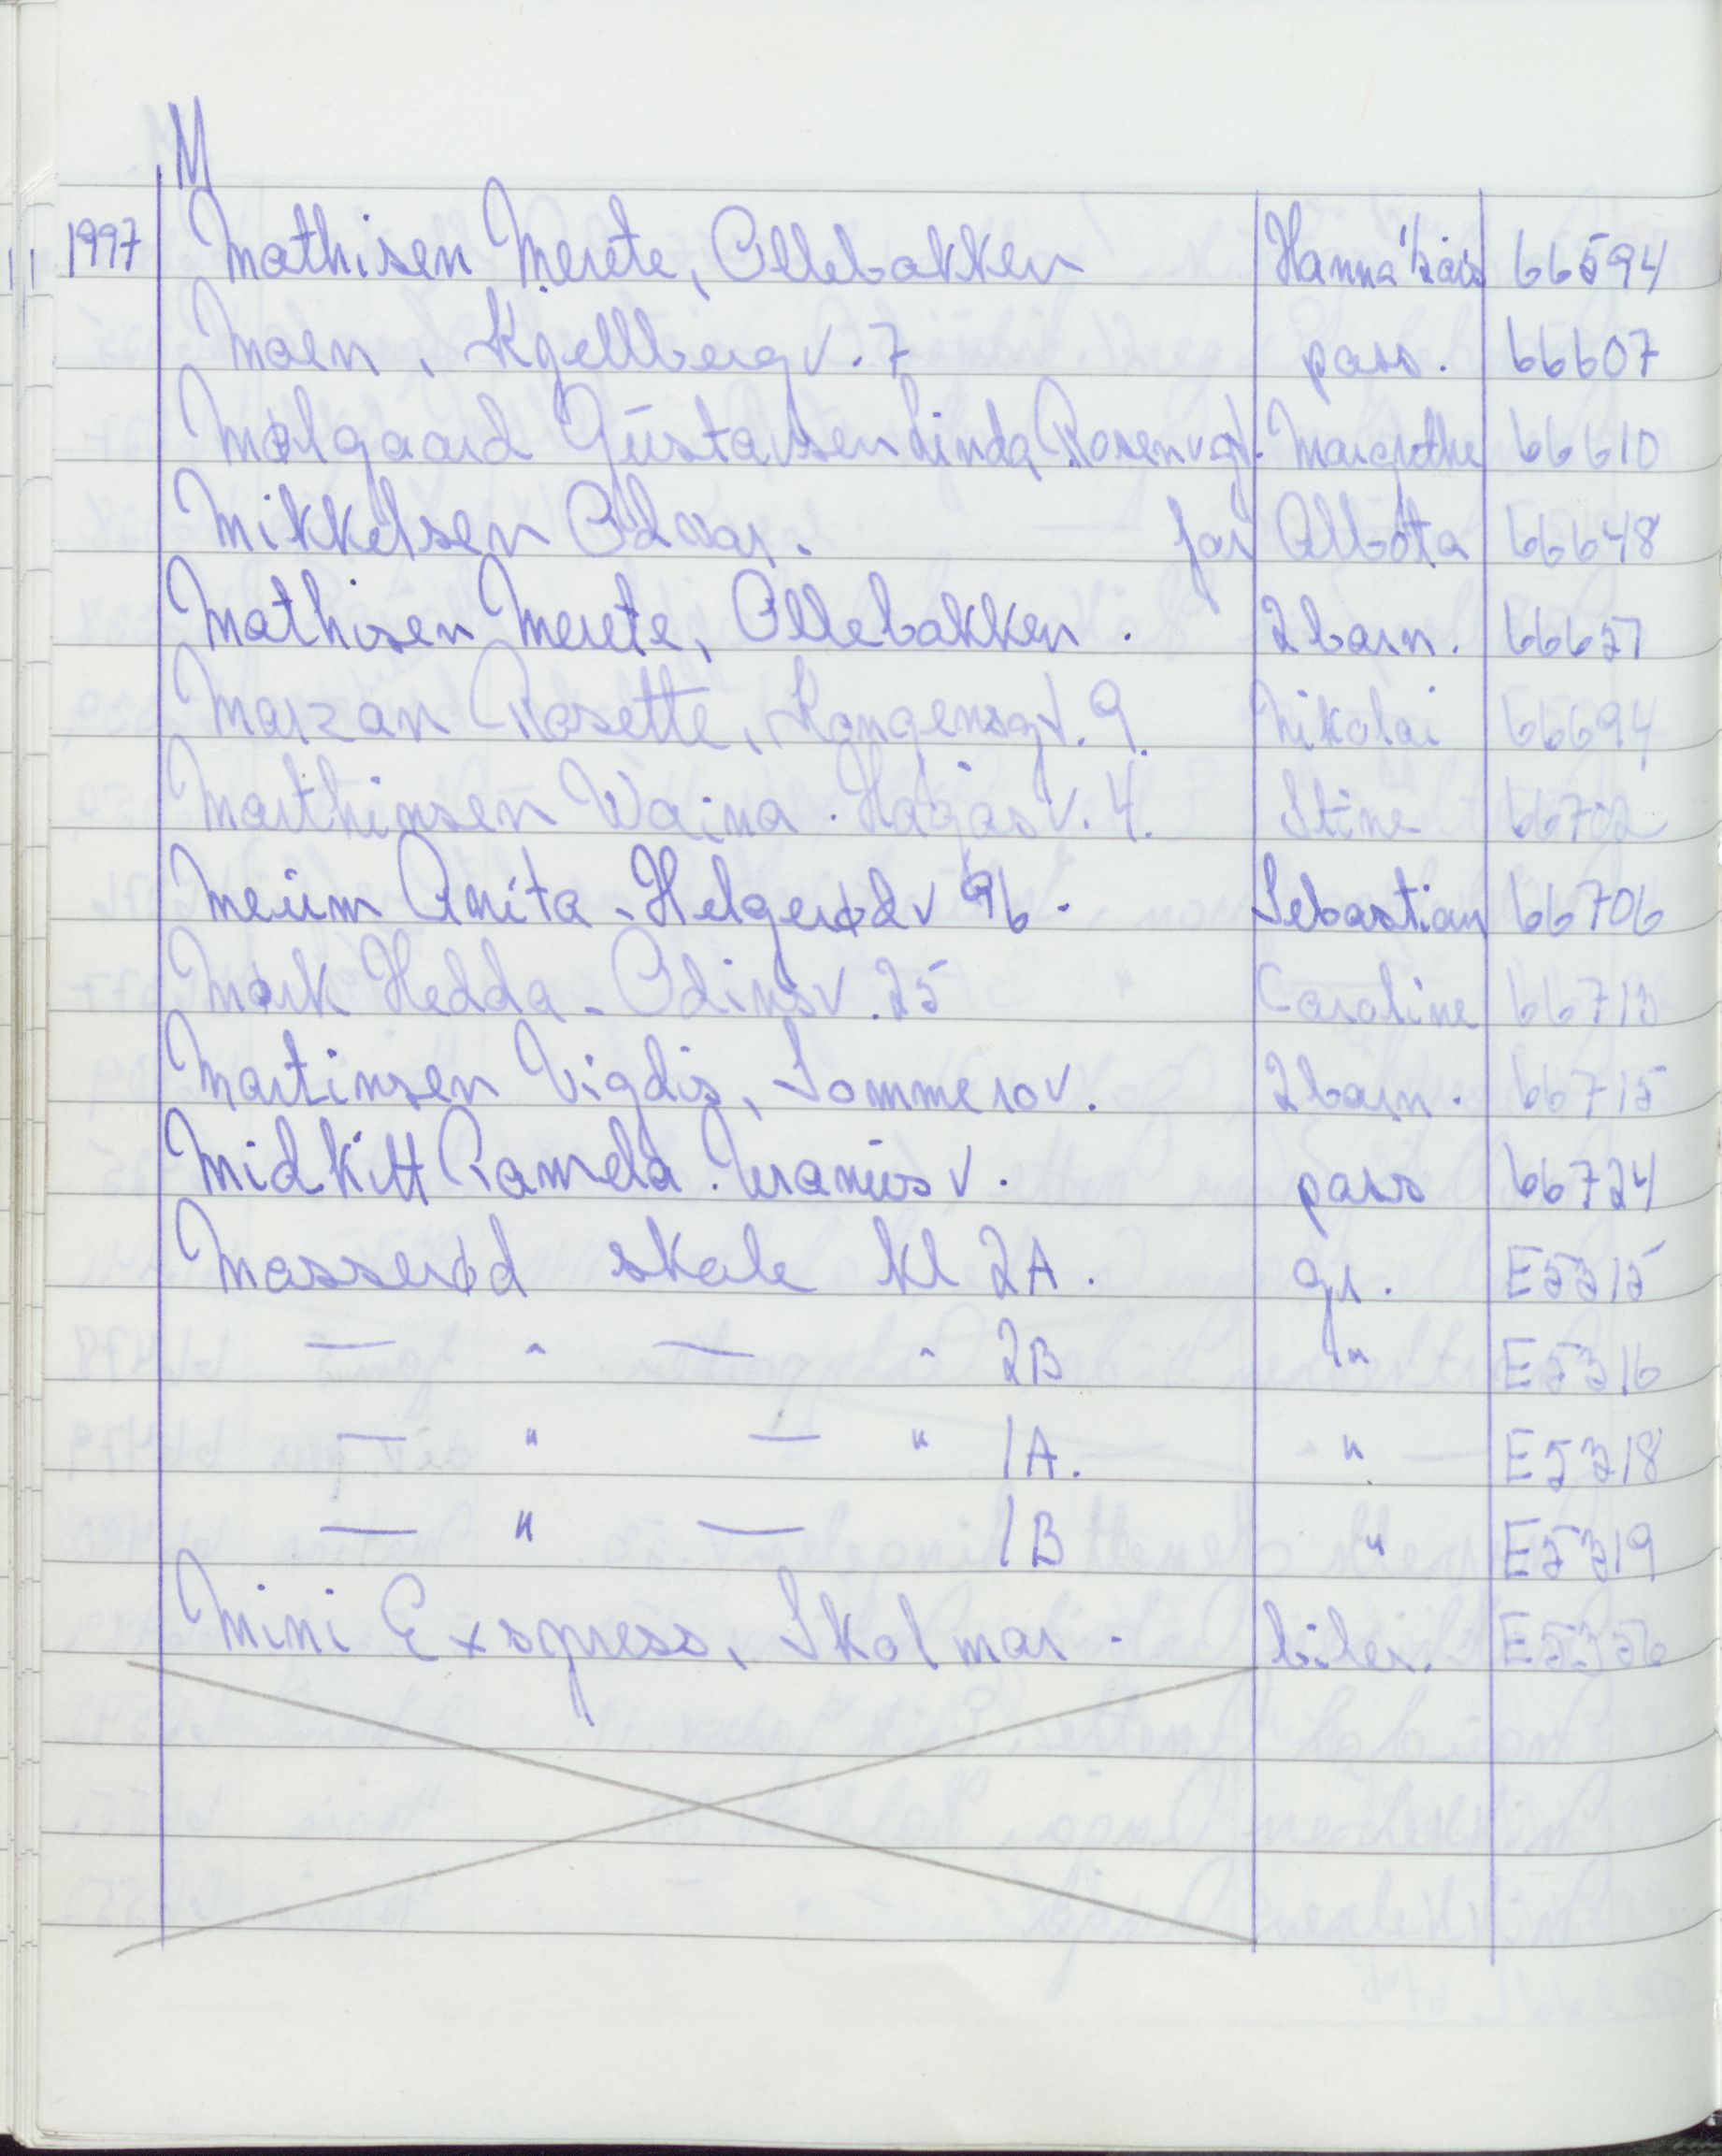 M
1997 Mathisen Merete, Ollebakken Hanna 1/2 års 66594
Moen, Kjellbergv. 7 pass. 66607
Mølgaard Gustavsen Linda, Rosenvgt. Margrethe 66610
Mikkelsen Oddvar. for Abbota 66648
Mathisen Merete, Ollebakken. 2 barn. 66651
Marzan Rosette, Kongensgt. 9. Nikolai 66694
Marthinsen Waina. Hågåsv. 4. Stine 66702
Meum Anita. Helgerødv 96. Sebastian 66706
Mørk Hedda. Odinsv. 25 Caroline 66713
Martinsen Vigdis, Sommerov. 2 barn. 66715
Midkitt Pamela. Uranusv. pass 66724
Masserød skole kl 2A. gr. E5315
— " — " 2B " E5316
— " — " 1A. " E5318
— " — 1B " E5319
Mini Exspress, Skolmar. biler. E5356